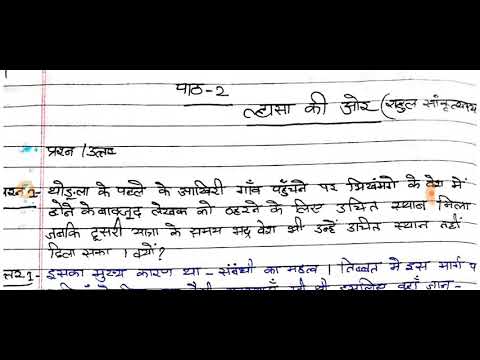 पाठ-2
ल्हासा की ओर (राहुल सांकृत्यायन
प्रश्न / उत्तर
प्रश्न 1- थोङ्ला के पहले के आखिरी गाँव पहुँचने पर भिखमंगे के वेश में
होने के बावजूद लेखक को ठहरने के लिए उचित स्थान मिला
जबकि दूसरी यात्रा के समय भद्र वेश भी उन्हें उचित स्थान नहीं
दिला सका । क्यों?
उत्तर 1- इसका मुख्य कारण था - संबंधों का महत्व । तिब्बत में इस मार्ग प
थी इसलिए वहाँ जान-